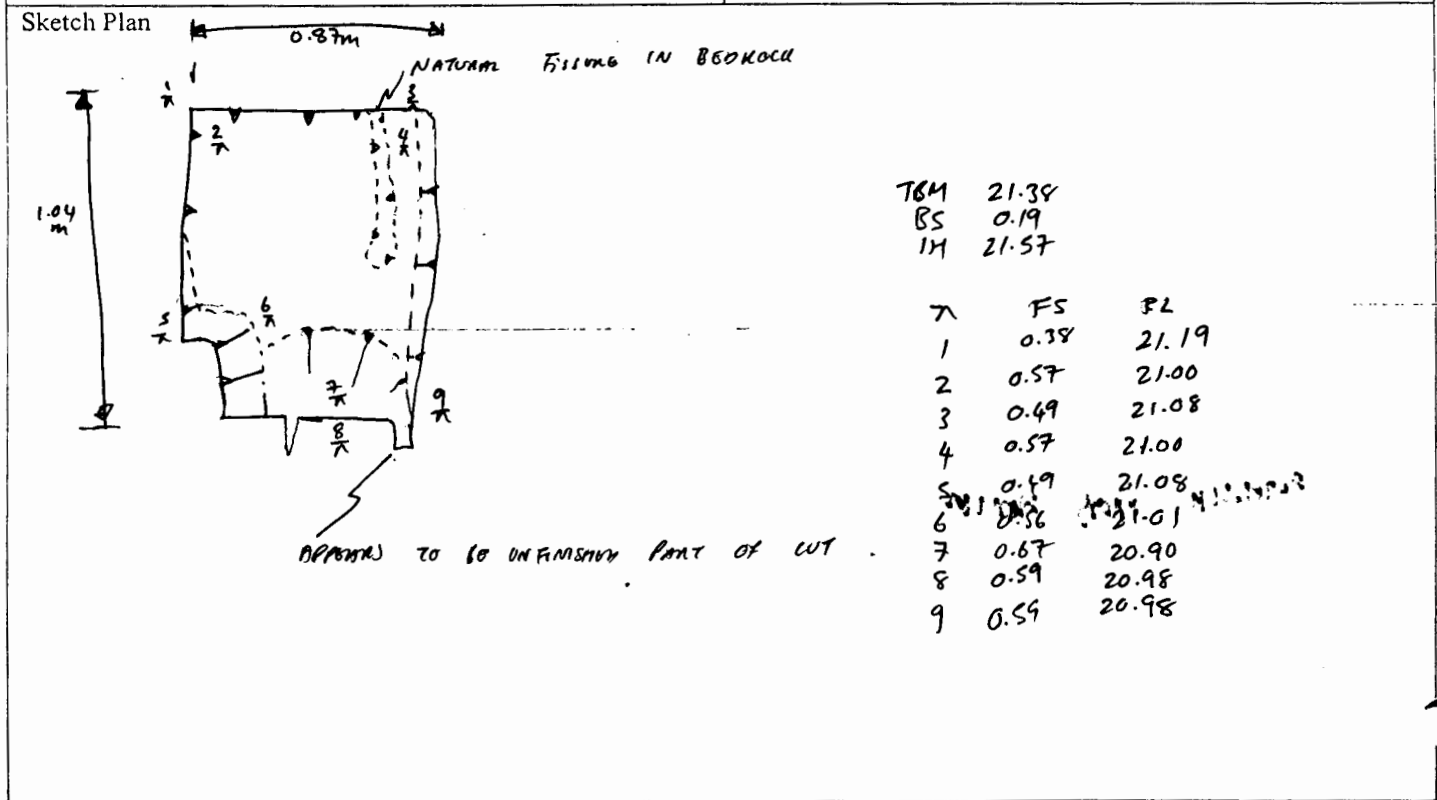 Sketch Plan
0.87m
NATURAL FISSURE IN BEDROCK
1
3
2
4
1.04
m
5
6
7
8
9
APPEARS TO BE UNFINISHED PART OF CUT .
TBM 21.38
BS 0.19
IH 21.57
⊼ FS RL
1 0.38 21.19
2 0.57 21.00
3 0.49 21.08
4 0.57 21.00
5 0.49 21.08
6 0.56 21.01
7 0.67 20.90
8 0.59 20.98
9 0.59 20.98